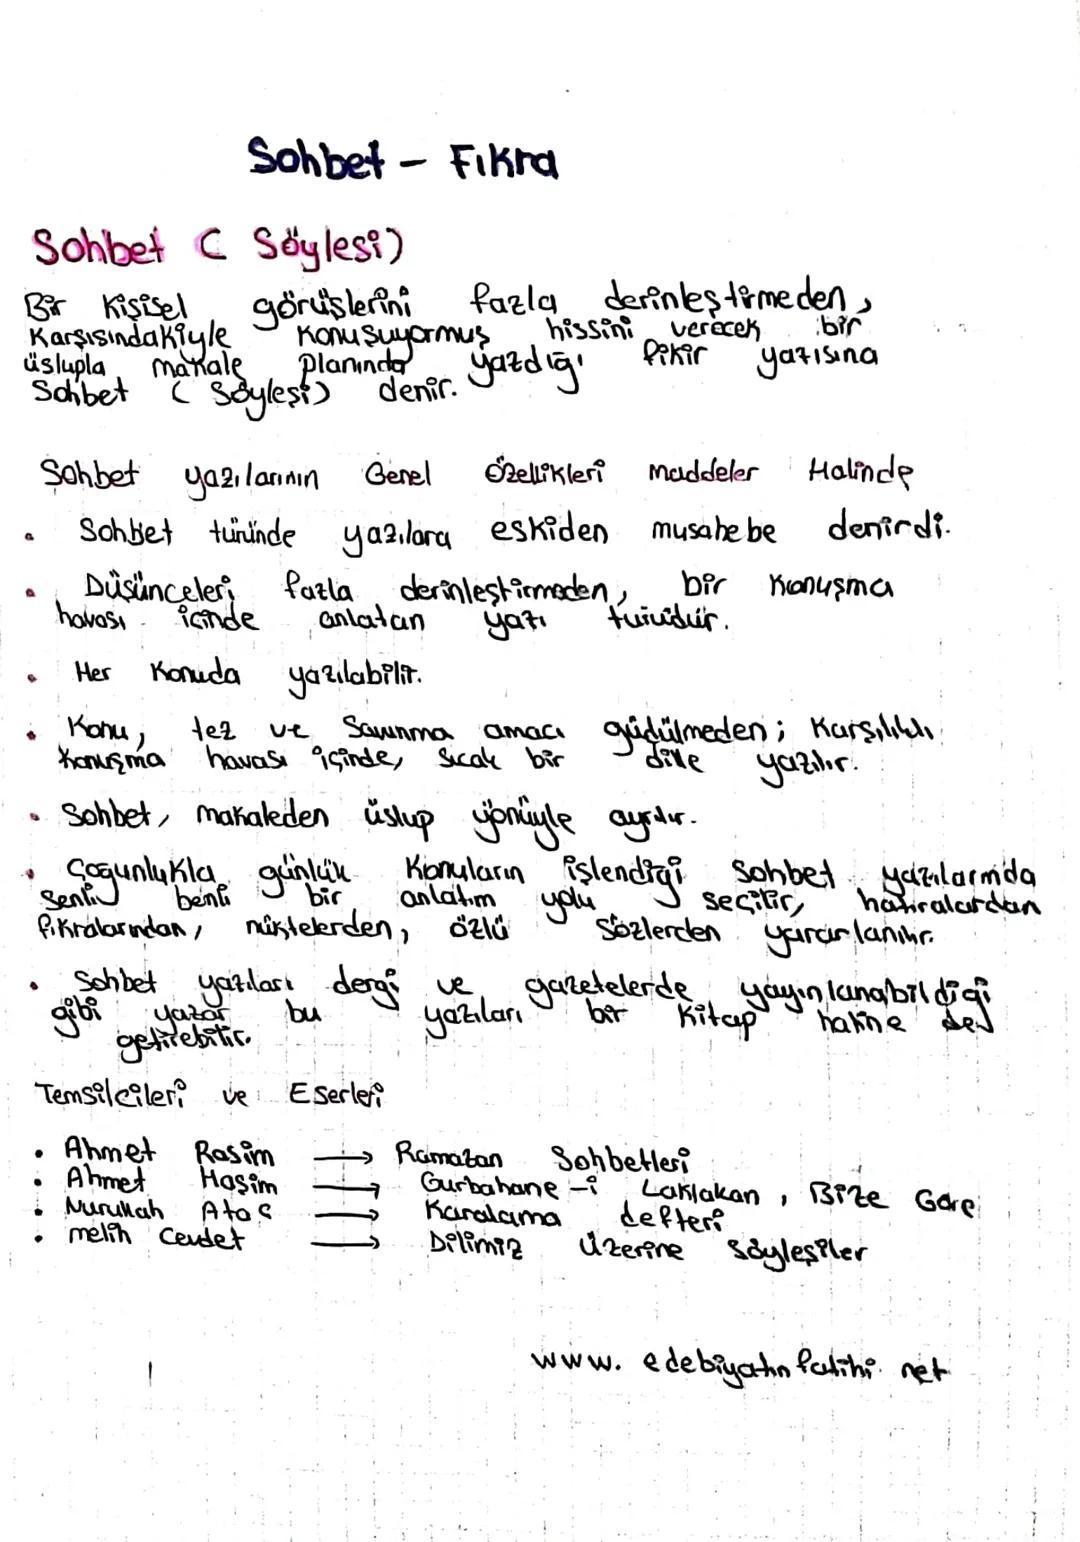 Sohbet - Fıkra
Sohbet ( Söylesi)
Bir Kişisel görüşlerini fazla derinleştirmeden,
Karşısındakiyle Konuşuyormuş hissini verecek bir
üslupla makale planında yazdığı fikir yazısına
Sohbet ( Söyleşi) denir.
Sohbet yazılarının Genel Özellikleri maddeler Halinde
• Sohbet türünde yazılara eskiden musahebe denirdi.
• Düşünceleri fazla derinleştirmeden, bir Konuşma
havası içinde anlatan yazı türüdür.
• Her Konuda yazılabilir.
• Konu, tez ve Savunma amacı güdülmeden; Karşılıklı
Konuşma havası içinde, sıcak bir dille yazılır.
• Sohbet, makaleden üslup yönüyle ayrılır.
• Çoğunlukla günlük Konuların işlendiği Sohbet yazılarında
Senli benli bir anlatım yolu seçilir, hatıralardan
fıkralarından, nüktelerden, özlü Sözlerden yararlanılır.
• Sohbet yazıları dergi ve gazetelerde yayınlanabildiği
gibi yazar bu yazıları bir Kitap haline de
getirebilir.
Temsilcileri ve Eserleri
• Ahmet Rasim → Ramazan Sohbetleri
• Ahmet Haşim → Gurbahane-i Laklakan, Bize Göre
• Nurullah Ataç → Karalama defteri
• melih Cevdet → Dilimiz Üzerine Söyleşiler
www. edebiyatın fatihi. net